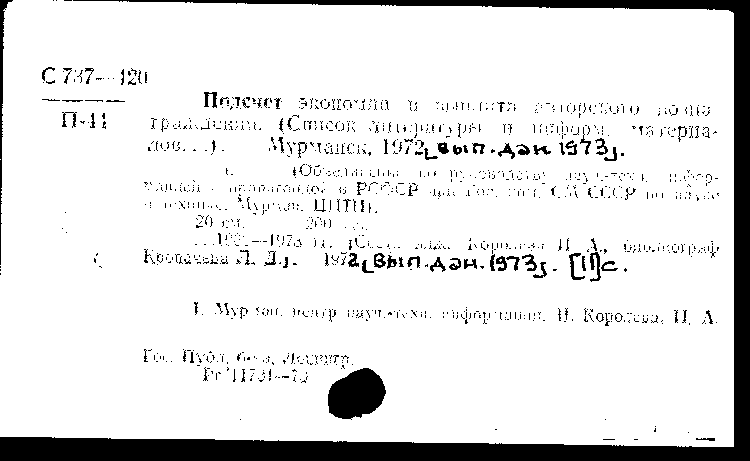 С 737—420
П-41
Подсчет экономии и выплата авторского возна-
граждения. (Список литературы и информ. материа-
лов...). Мурманск, 1972 [вып. дан. 1973].
(Объединение по руководству науч.-техн. инфор-
мацией и пропагандой в РСФСР при Гос. ком. СМ СССР по науке
и технике. Мурман. ЦНТИ).
20 см. 200
1921—1973 гг. [Сост. Королева Н. А., библиограф
Кропачева Л. Д.]. 1972 [вып. дан. 1973]. [11] с.
I. Мурман. центр науч.-техн. информации. II. Королева, Н. А.
Гос. Публ. б-ка, Ленингр.
Рг 11731—73